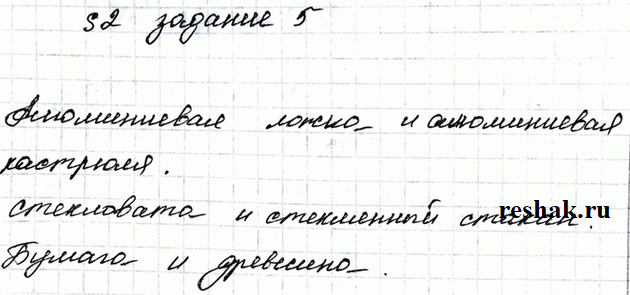 §2 задание 5
Алюминиевая ложка и алюминиевая
кастрюля.
Стекловата и стеклянный стакан.
reshak.ru
Бумага и древесина.